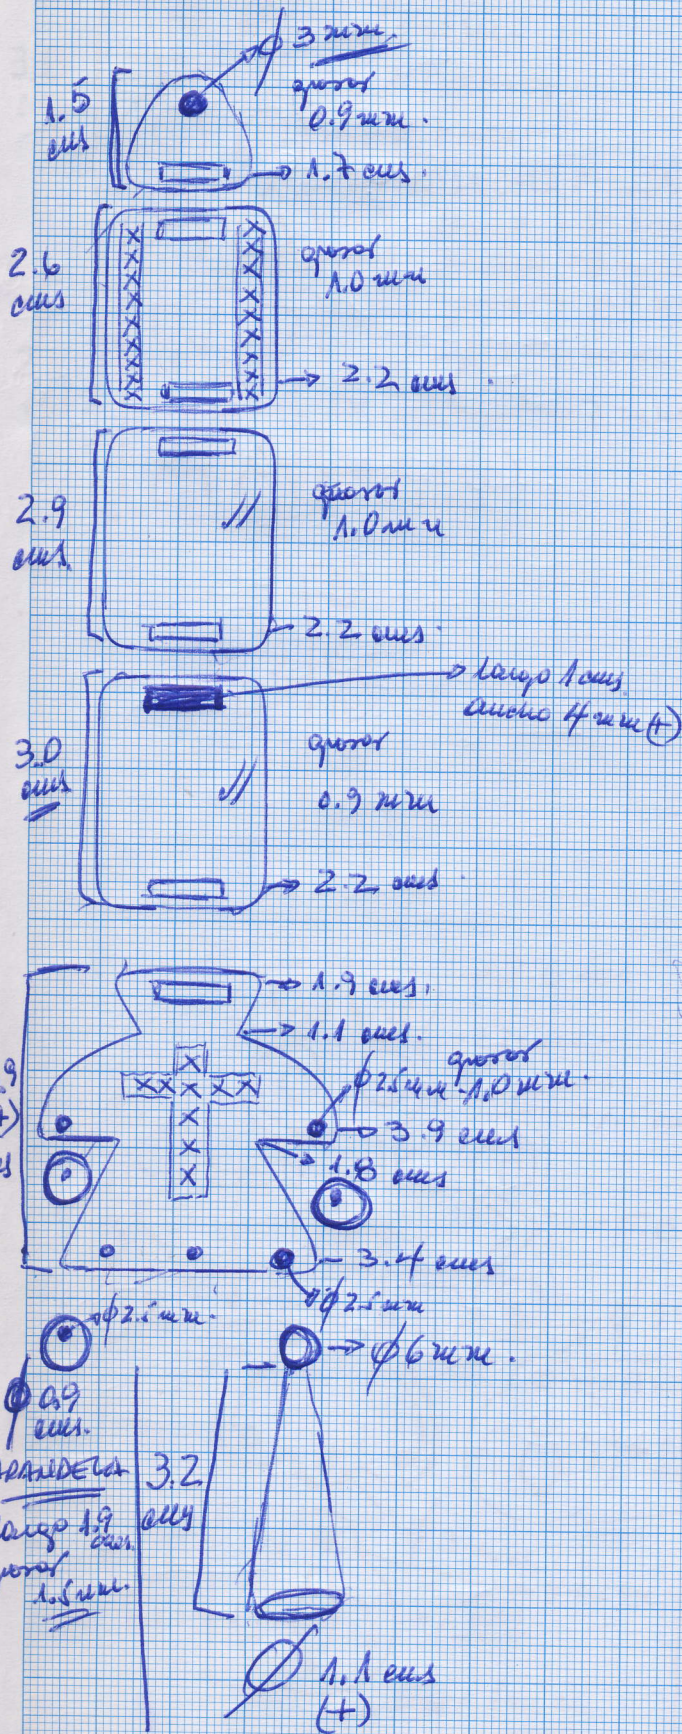 ϕ 3 mm.
grosor
0.9 mm.
1.5
cms
1.7 cms.
2.6
cms
grosor
1.0 mm
2.2 cms.
2.9
cms.
grosor
1.0 mm
2.2 cms.
largo 1 cms
ancho 4 mm (+)
3.0
cms
grosor
0.9 mm
2.2 cms.
1.9 cms.
1.1 cms.
grosor
ϕ 2.5 mm - 1.0 mm.
.9
3.9 cms
1.8 cms
3.4 cms
ϕ 2.5 mm
ϕ 2.5 mm.
ϕ 6 mm.
ϕ 0.9
cms.
ARANDELA
largo 1.9 cms.
grosor
1.5 mm.
3.2
cms
ϕ 1.1 cms
(+)